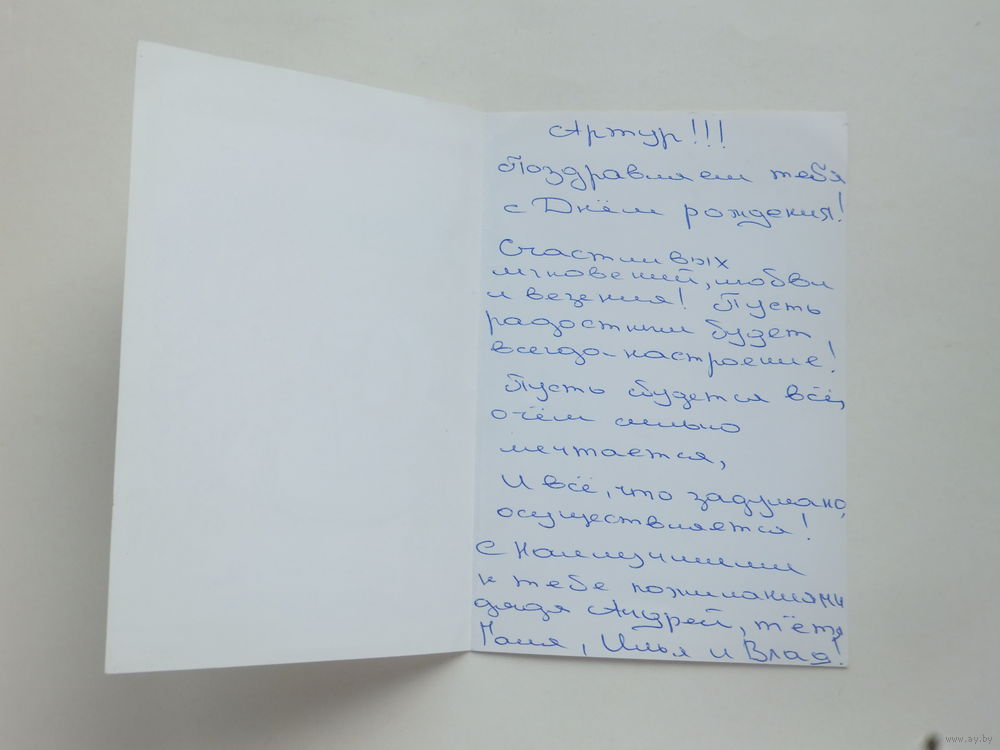 Артур!!!
Поздравляем тебя
с Днём рождения!
Счастливых
мгновений, любви
и везения! Пусть
радостным будет
всегда настроение!
Пусть сбудется всё,
о чём сильно
мечтается,
И всё, что задумано,
осуществляется!
С наилучшими
к тебе пожеланиями
дядя Андрей, тётя
Галя, Илья и Влад!
www.ay.by